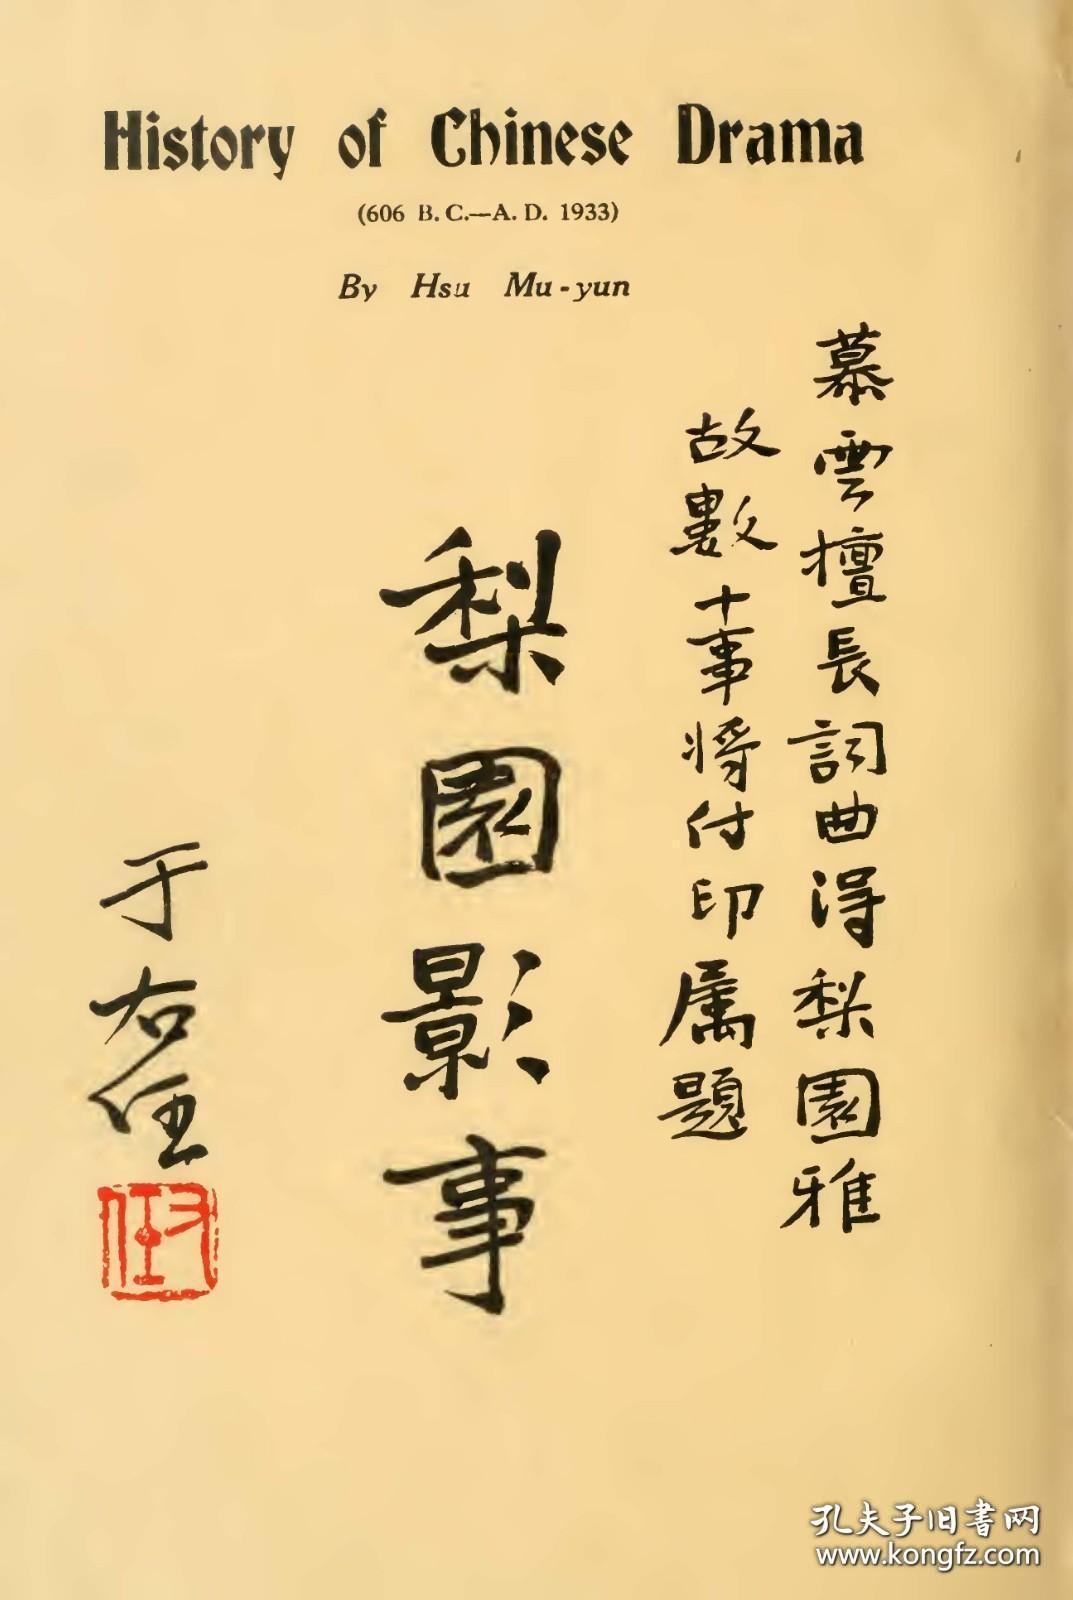 History of Chinese Drama
(606 B.C.—A.D. 1933)
By Hsu Mu-yun
慕雲擅長詞曲得梨園雅
故數十事將付印属題
梨園影事
于右任
右任
孔夫子旧書网
www.kongfz.com